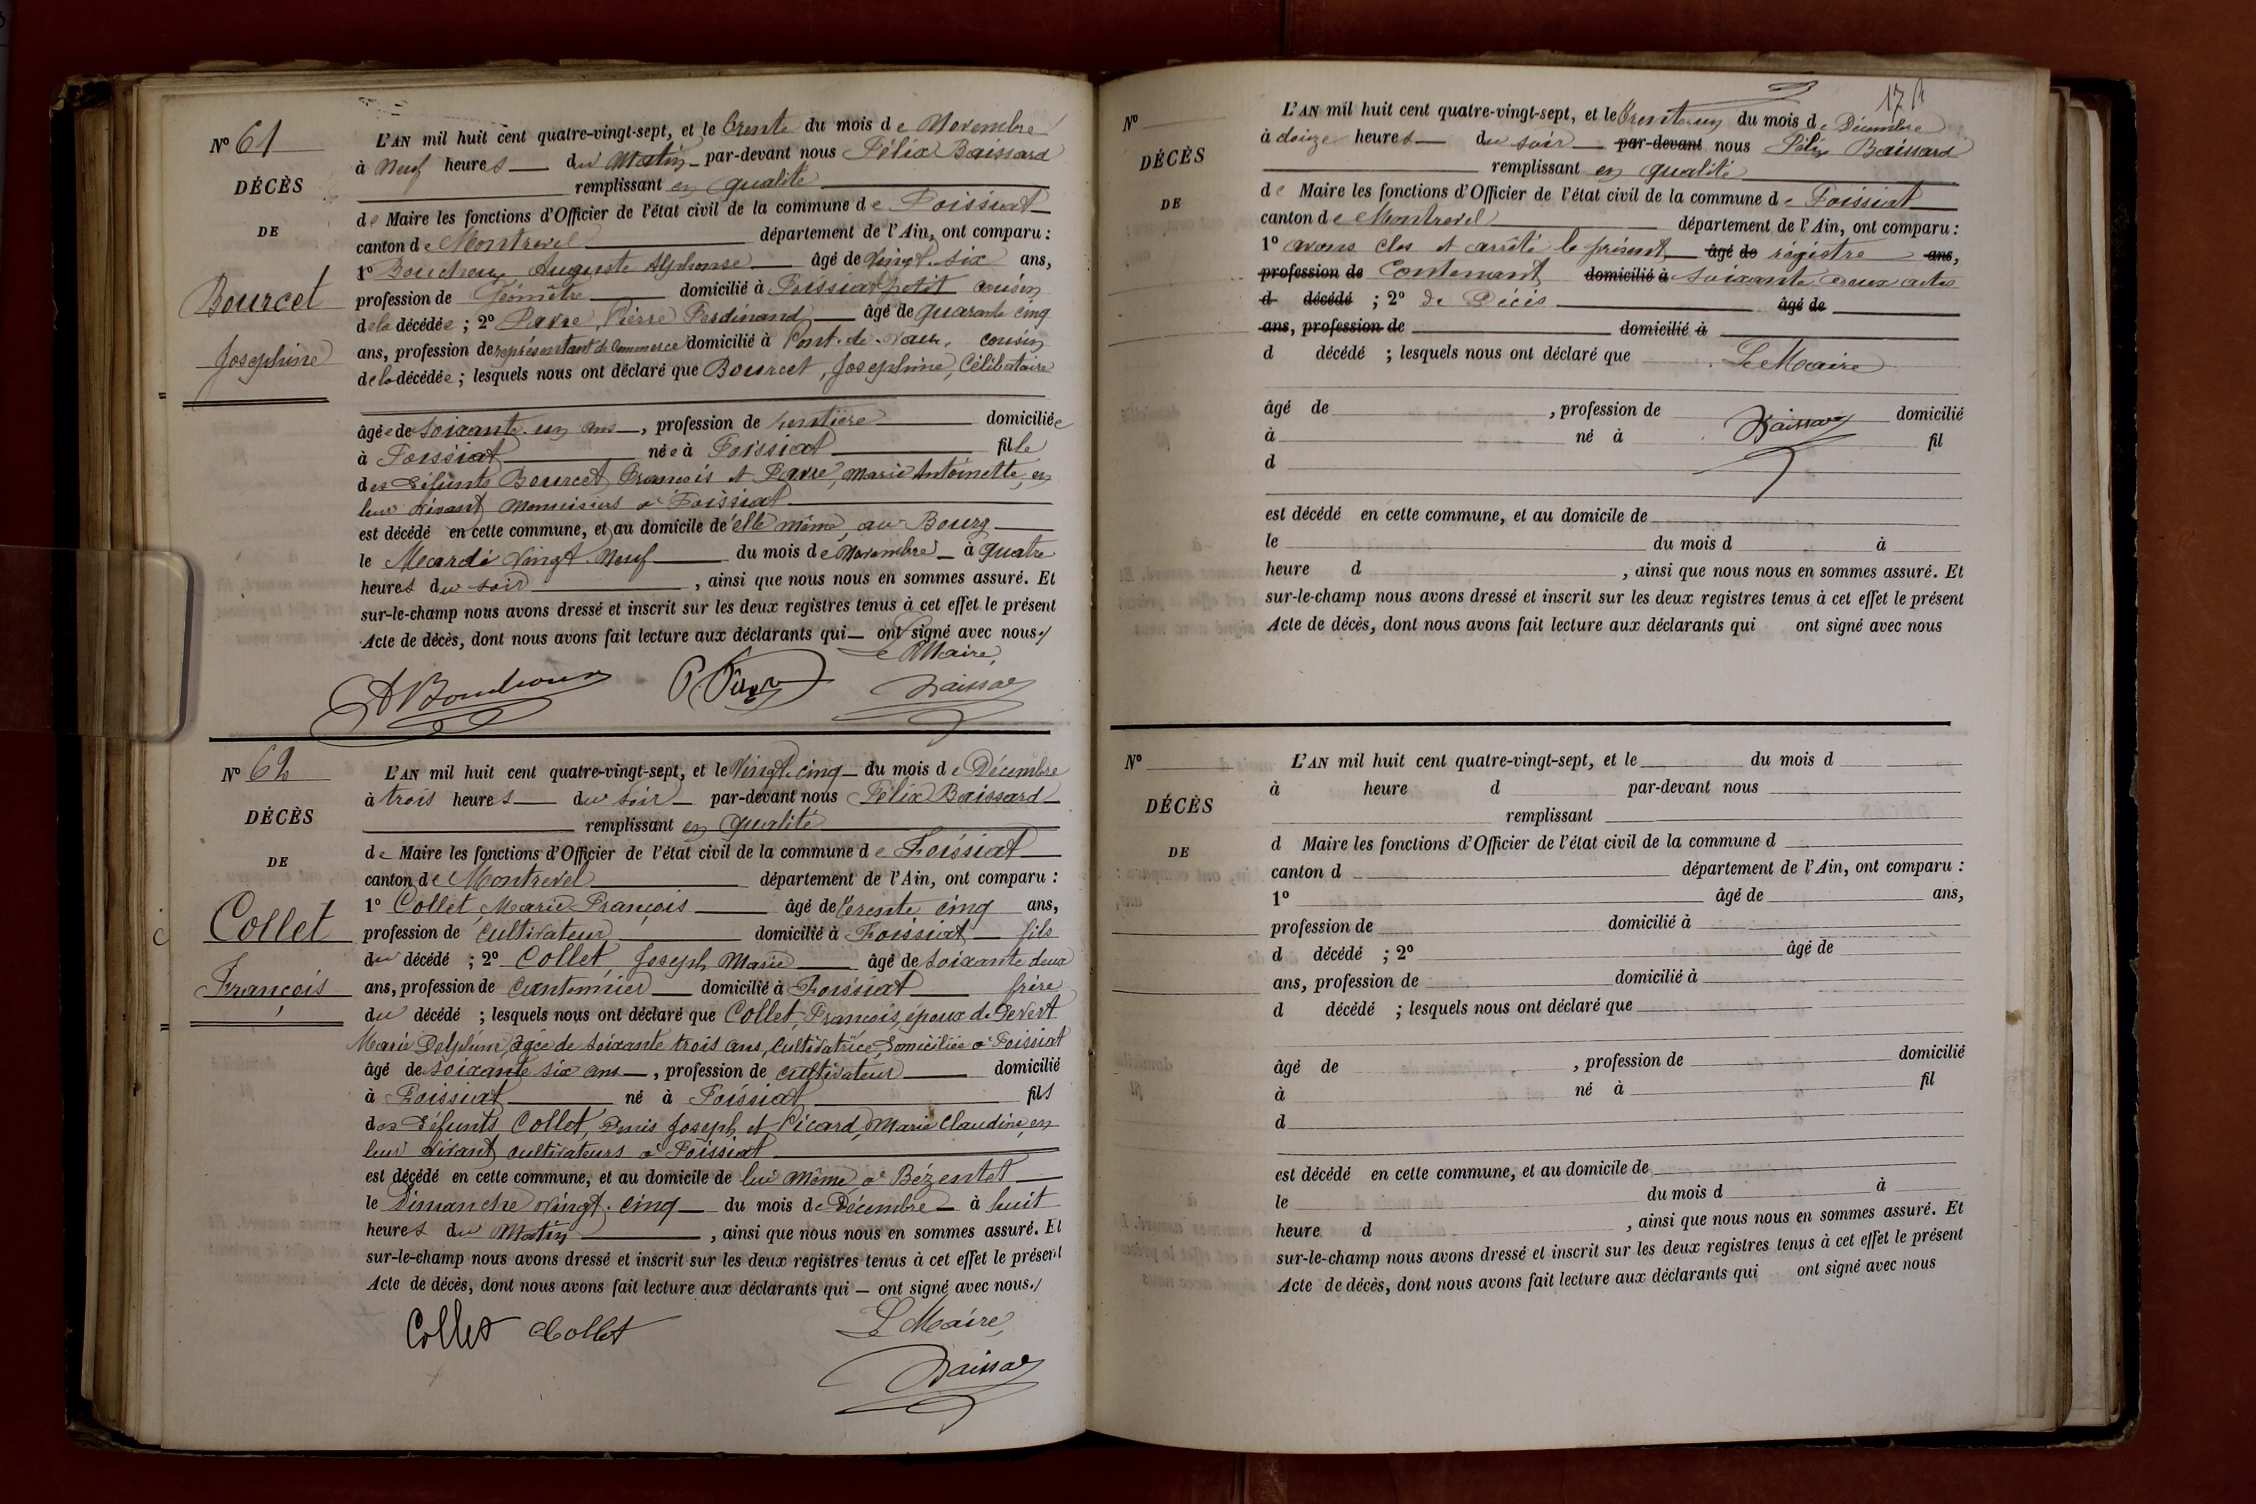 Nº 61
DÉCÈS
DE
Bourcet
Josephine
L'AN mil huit cent quatre-vingt-sept, et le trente du mois de Novembre
à Neuf heures du Matin par-devant nous Félix Baissard
remplissant en qualité
de Maire les fonctions d'Officier de l'état civil de la commune de Foissiat
canton de Montrevel département de l'Ain, ont comparu :
1º Boudroux Auguste Alphonse âgé de Vingt-six ans,
profession de Géomètre domicilié à Foissiat petit cousin
de la décédée ; 2º Favre, Pierre Ferdinand âgé de quarante cinq
ans, profession de représentant de Commerce domicilié à Pont-de-Vaux, cousin
de la décédée ; lesquels nous ont déclaré que Bourcet, Josephine, Célibataire
âgée de soixante-un ans, profession de rentière domiciliée
à Foissiat née à Foissiat fille
des défunts Bourcet, François et Favre, Marie Antoinette, en
leur vivant Menuisiers à Foissiat
est décédé en cette commune, et au domicile de elle même, au Bourg
le Mardi Vingt-Neuf du mois de Novembre à quatre
heures du soir, ainsi que nous nous en sommes assuré. Et
sur-le-champ nous avons dressé et inscrit sur les deux registres tenus à cet effet le présent
Acte de décès, dont nous avons fait lecture aux déclarants qui ont signé avec nous./
Le Maire,
ABoudroux P Favre Baissard
Nº 62
DÉCÈS
DE
Collet
François
L'AN mil huit cent quatre-vingt-sept, et le Vingt-cinq du mois de Décembre
à trois heures du soir par-devant nous Félix Baissard
remplissant en qualité
de Maire les fonctions d'Officier de l'état civil de la commune de Foissiat
canton de Montrevel département de l'Ain, ont comparu :
1º Collet, Marie François âgé de trente cinq ans,
profession de cultivateur domicilié à Foissiat fils
du décédé ; 2º Collet, Joseph Marie âgé de soixante deux
ans, profession de Cantonnier domicilié à Foissiat frère
du décédé ; lesquels nous ont déclaré que Collet, François, époux de Devert
Marie Delphine, âgée de soixante trois ans, cultivatrice, domiciliée à Foissiat
âgé de soixante six ans, profession de cultivateur domicilié
à Foissiat né à Foissiat fils
des défunts Collet, Denis Joseph et Picard, Marie Claudine, en
leur vivant cultivateurs à Foissiat
est décédé en cette commune, et au domicile de lui même à Bézentet
le Dimanche vingt-cinq du mois de Décembre à huit
heures du Matin, ainsi que nous nous en sommes assuré. Et
sur-le-champ nous avons dressé et inscrit sur les deux registres tenus à cet effet le présent
Acte de décès, dont nous avons fait lecture aux déclarants qui ont signé avec nous./
Collet Collet Le Maire,
Baissard
Nº
DÉCÈS
DE
L'AN mil huit cent quatre-vingt-sept, et le trente-un du mois de Décembre
à douze heures du soir par-devant nous Félix Baissard
remplissant en qualité
de Maire les fonctions d'Officier de l'état civil de la commune de Foissiat
canton de Montrevel département de l'Ain, ont comparu :
1º avons clos et arrêté le présent âgé de régistre ans,
profession de Contenant domicilié à soixante-deux actes
d décédé ; 2º de Décès âgé de
ans, profession de domicilié à
d décédé ; lesquels nous ont déclaré que Le Maire
âgé de , profession de Baissard domicilié
à né à fil
d
est décédé en cette commune, et au domicile de
le du mois d à
heure d , ainsi que nous nous en sommes assuré. Et
sur-le-champ nous avons dressé et inscrit sur les deux registres tenus à cet effet le présent
Acte de décès, dont nous avons fait lecture aux déclarants qui ont signé avec nous
Nº
DÉCÈS
DE
L'AN mil huit cent quatre-vingt-sept, et le du mois d
à heure d par-devant nous
remplissant
d Maire les fonctions d'Officier de l'état civil de la commune d
canton d département de l'Ain, ont comparu :
1º âgé de ans,
profession de domicilié à
d décédé ; 2º âgé de
ans, profession de domicilié à
d décédé ; lesquels nous ont déclaré que
âgé de , profession de domicilié
à né à fil
d
est décédé en cette commune, et au domicile de
le du mois d à
heure d , ainsi que nous nous en sommes assuré. Et
sur-le-champ nous avons dressé et inscrit sur les deux registres tenus à cet effet le présent
Acte de décès, dont nous avons fait lecture aux déclarants qui ont signé avec nous